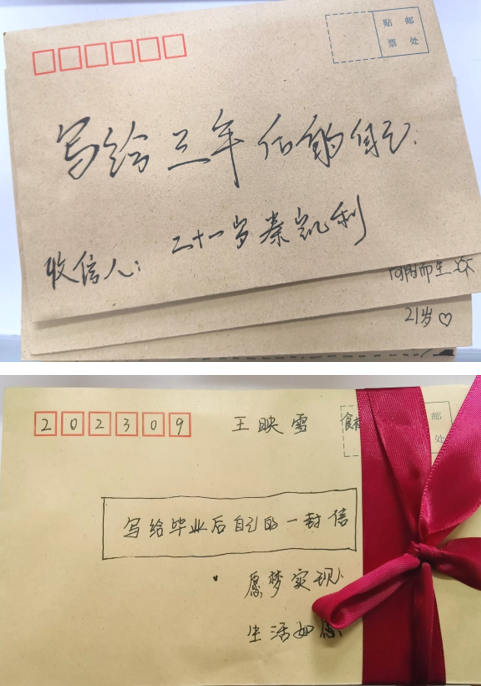 贴 邮
票 处
写给三年后的自己.
收信人: 二十一岁秦凯利
向阳而生
21岁♡
202309 王映雪
邮
处
写给毕业后自己的一封信
愿梦实现
生活如愿